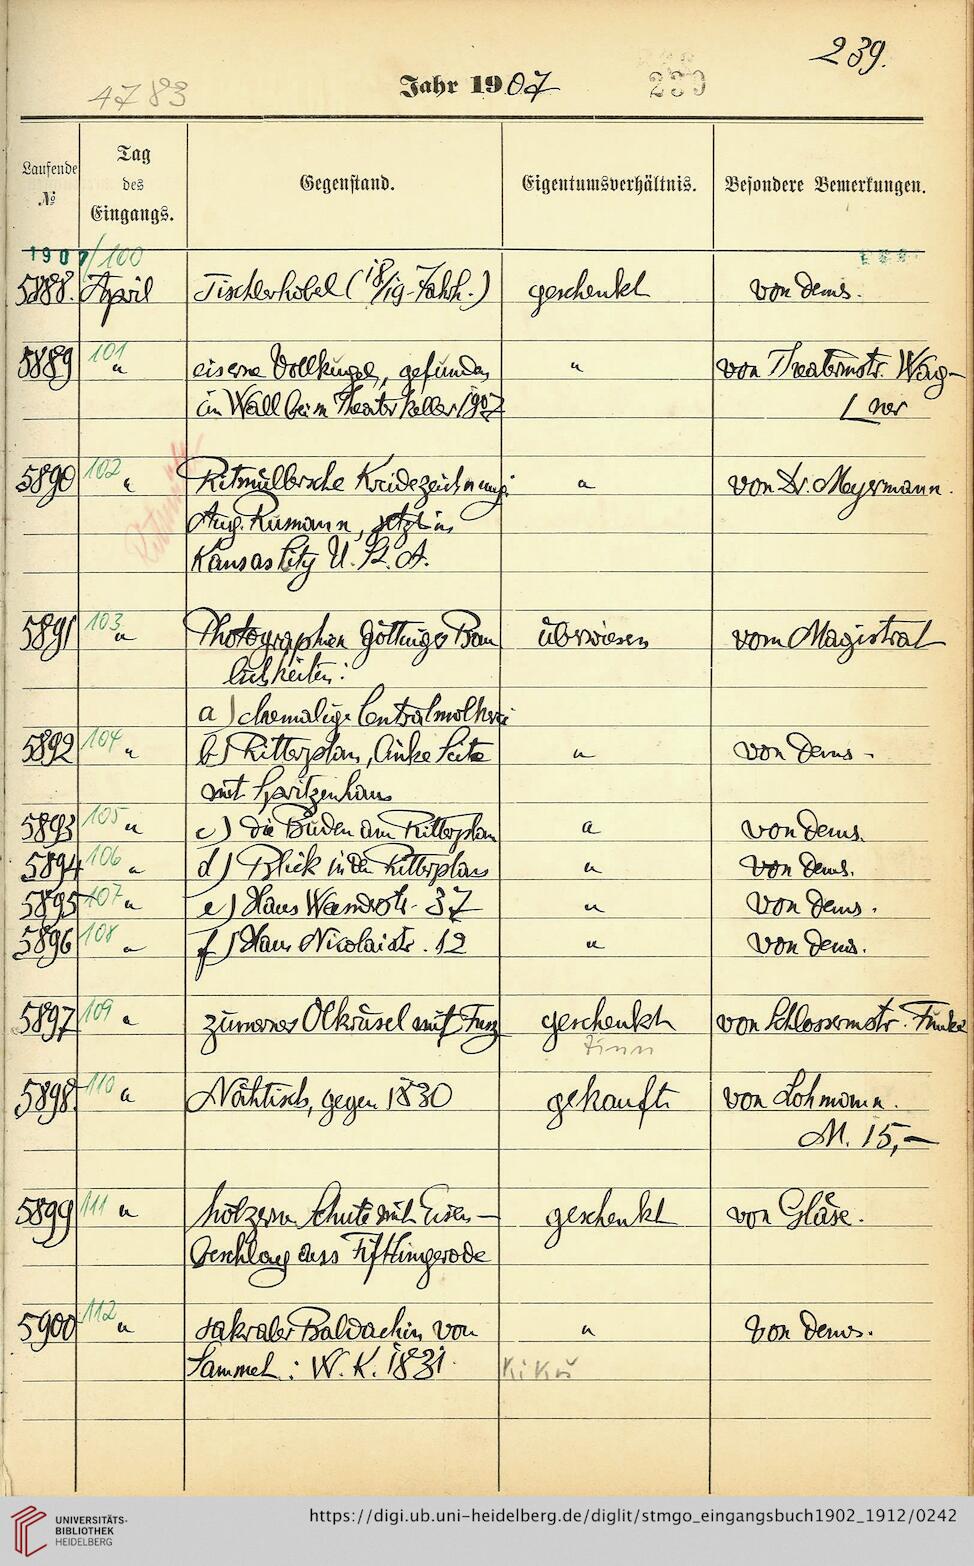 239.
4783
Jahr 1907
239
Laufende № Tag des Eingangs. Gegenstand. Eigentumsverhältnis. Besondere Bemerkungen.
1907/100
5888. April Tischlerhobel (18/19. Jahrh.) geschenkt von dems.
5889 101 " eiserne Vollkugel, gefunden " von Theatermstr. Wag-
im Wall beim Theaterkeller 1907 ner
5890 102 " Ritmüllersche Kreidezeichnung: " von Dr. Meyermann.
Aug. Rumann, jetzt in
Kansas City U. St. A.
5891 103 " Photographien Göttinger Bau überwiesen vom Magistrat
lichkeiten:
a) ehemalige Centralmolkerei
5892 104 " b) Ritterplan, linke Seite " von dems.
mit Spritzenhaus
5893 105 " c) die Buden am Ritterplan " von dems.
5894 106 " d) Blick in den Ritterplan " von dems.
5895 107 " e) Haus Weenderstr. 37 " von dems.
5896 108 " f) Haus Nicolaistr. 12 " von dems.
5897 109 " Ölkrüsel mit Fuss geschenkt von Schlossermstr. Funke
Zinn
5898. 110 " Nähtisch, gegen 1830 gekauft von Lohmann.
M. 15,–
5899 111 " hölzerne Schute mit Eisen- geschenkt von Gläse.
beschlag aus
5900 112 " Baldachin von " von dems.
W. K. 1831.
UNIVERSITÄTS-
BIBLIOTHEK
HEIDELBERG
https://digi.ub.uni-heidelberg.de/diglit/stmgo_eingangsbuch1902_1912/0242